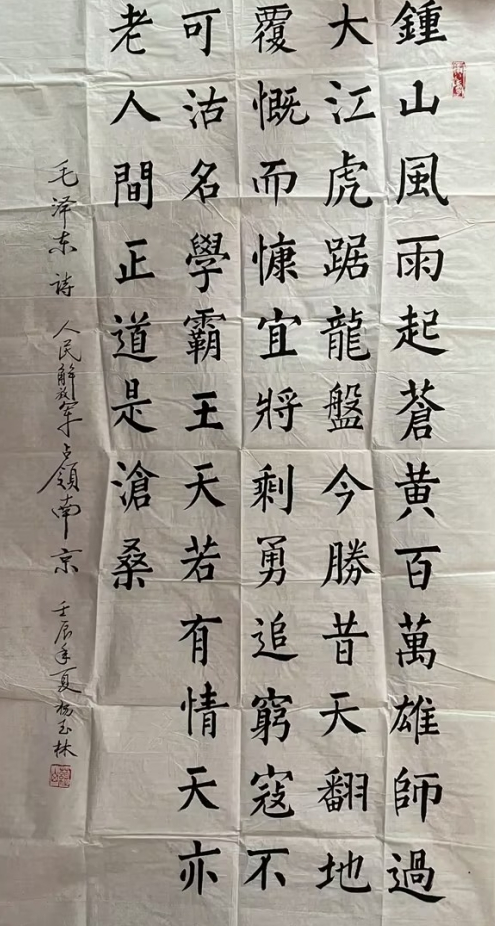 鍾山風雨起蒼黄百萬雄師過
大江虎踞龍盤今勝昔天翻地
覆慨而慷宜將剩勇追窮寇不
可沽名學霸王天若有情天亦
老人間正道是滄桑
毛泽东诗 人民解放军占領南京 壬辰年夏 杨玉林